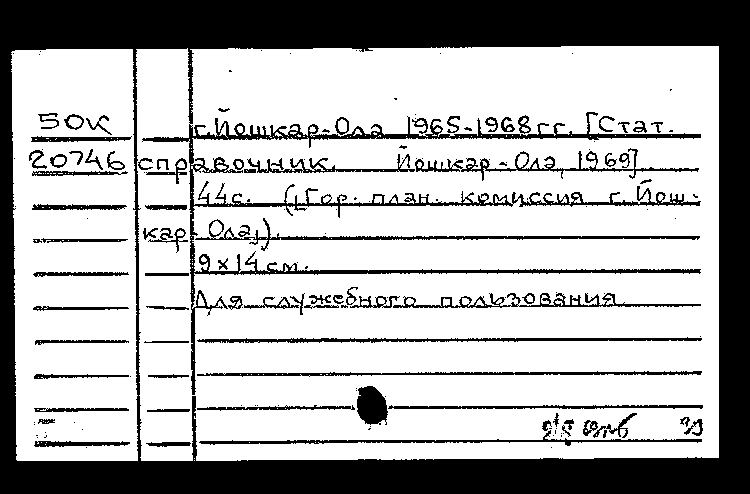 50К г.Йошкар-Ола 1965-1968 гг. [Стат.
20746 справочник. Йошкар-Ола, 1969].
44с. ([Гор. план. комиссия г. Йош-
кар-Олы]).
9х14 см.
Для служебного пользования